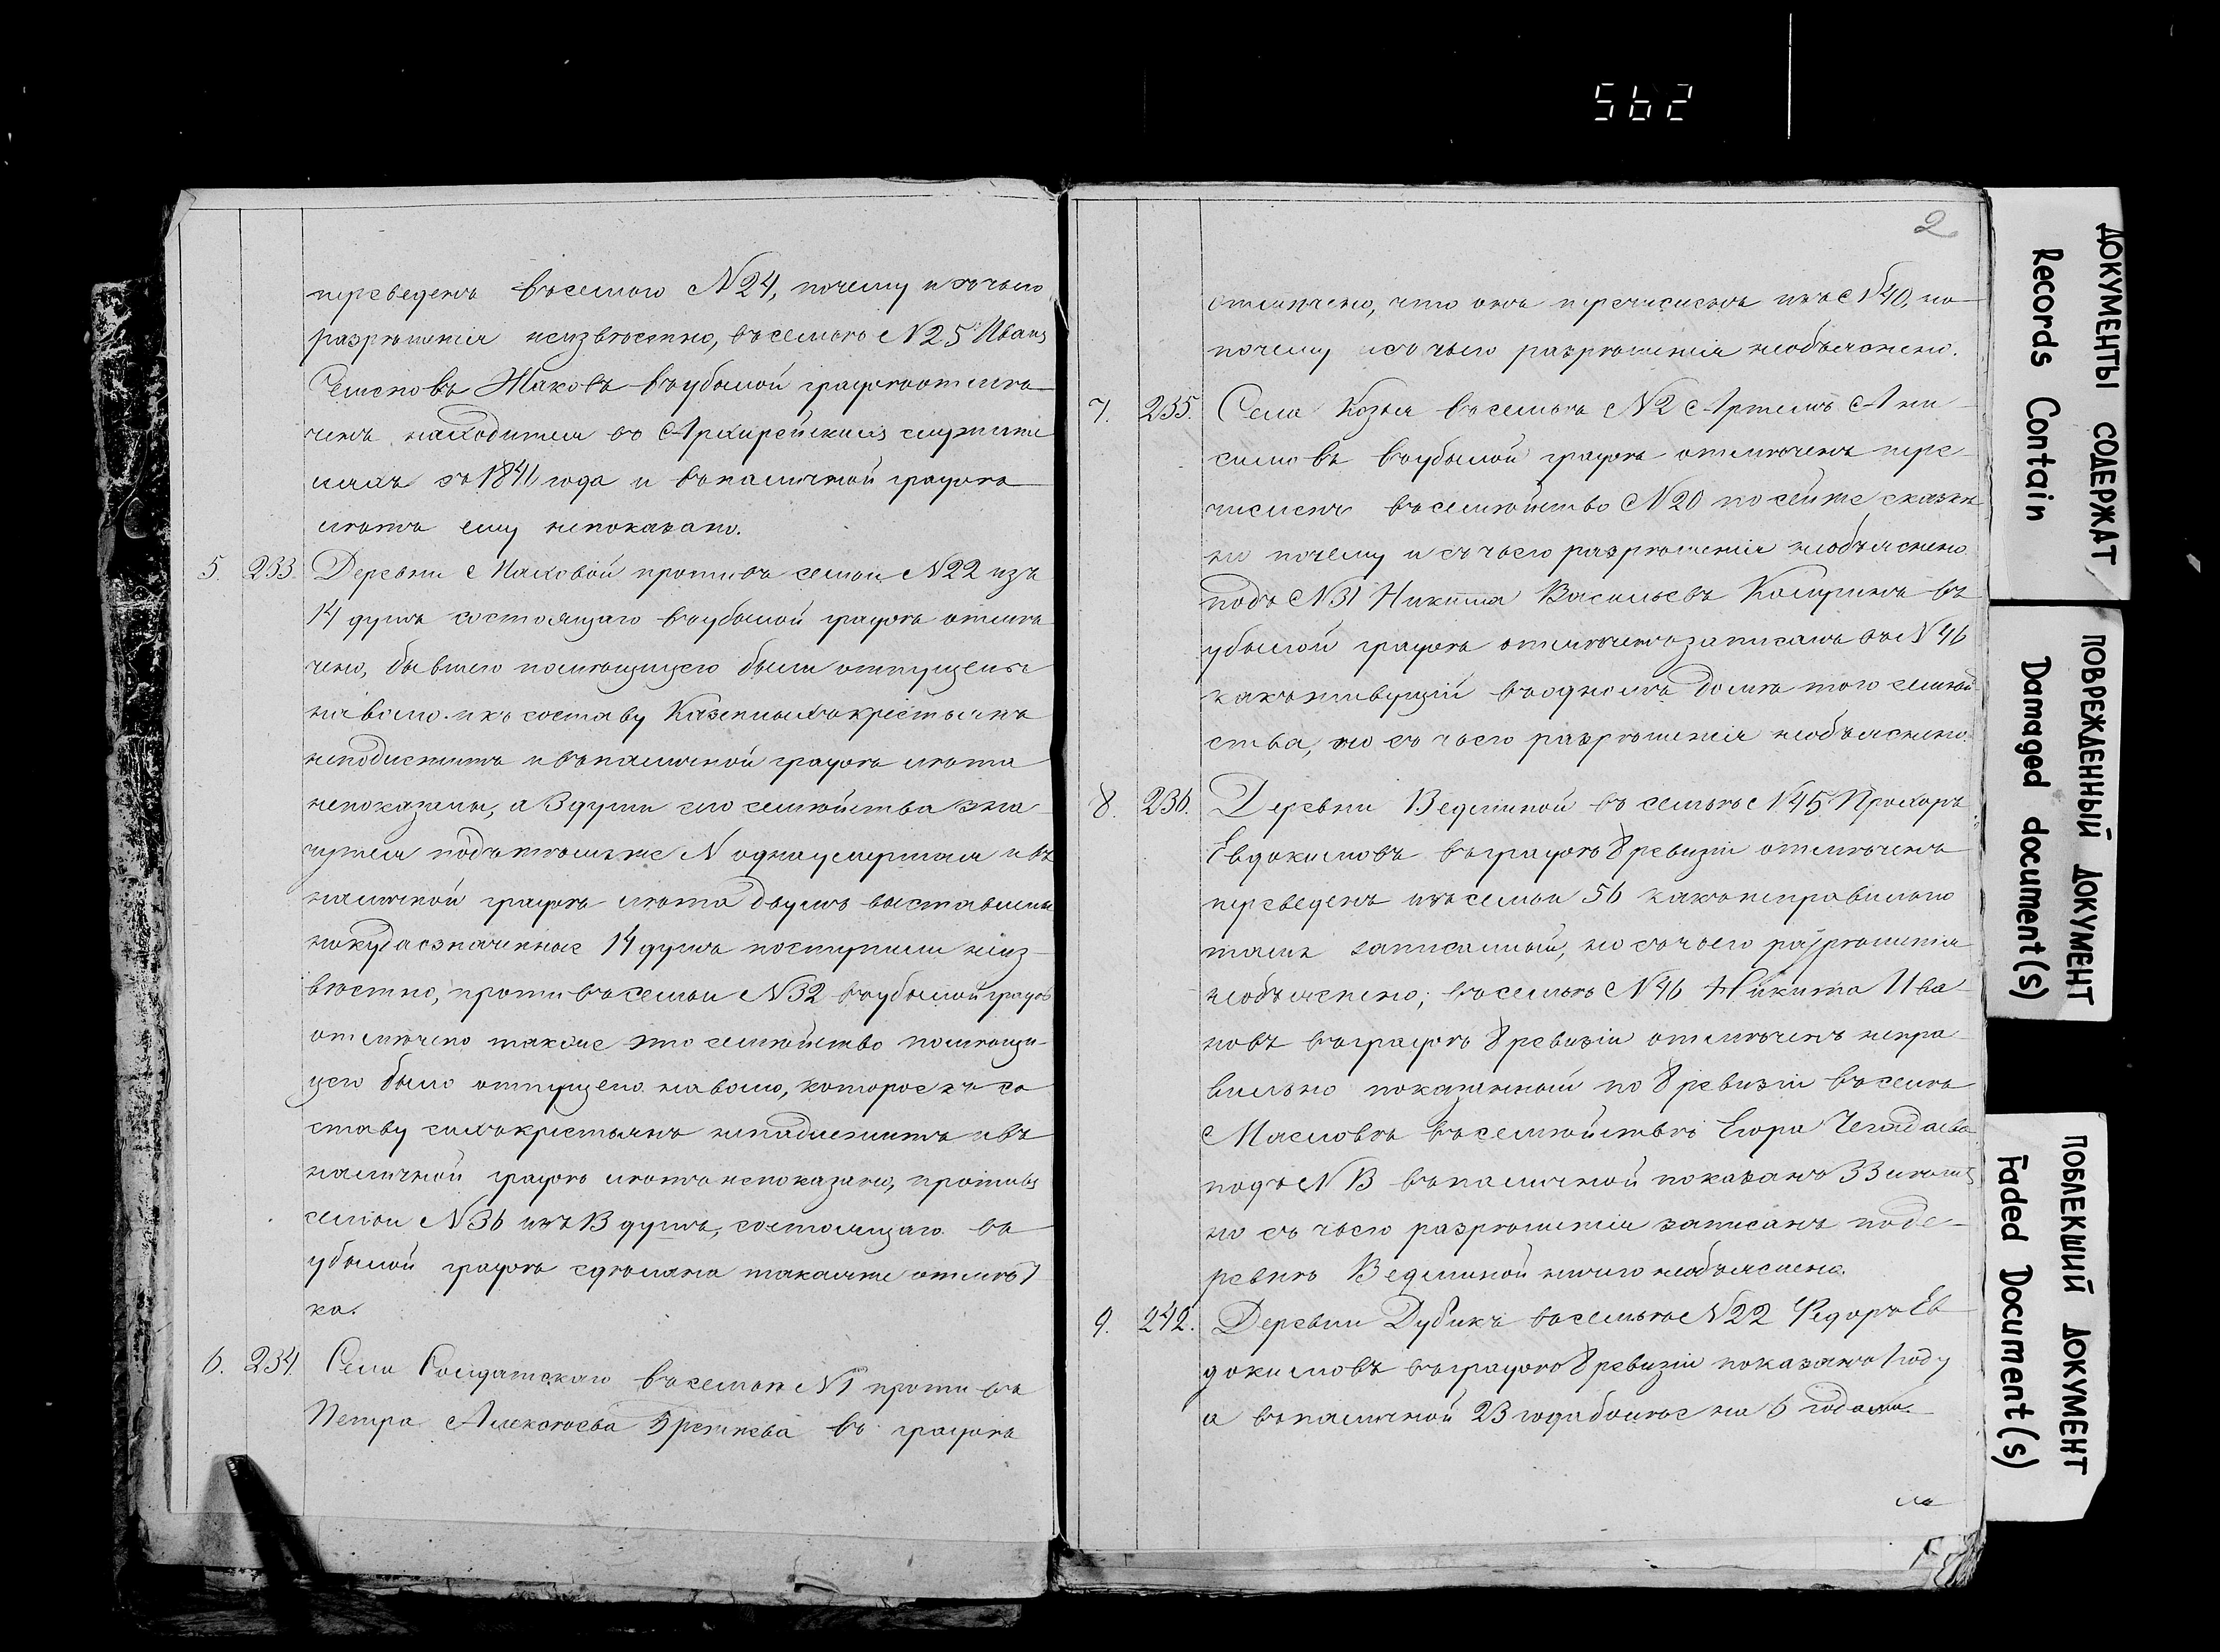 562
переведенъ въ семью N24, почему и съ чьего
разрѣшенія неизвѣстно, въ семьѣ N25 Иванъ
Семеновъ Жаковъ въ убылой графѣ отмѣ-
ченъ находится во Архирейскихъ служите
ляхъ съ 1841 года и въ наличной графѣ
лѣтъ ему непоказано.
5. 233. Деревни Маховой противъ семьи N22 изъ
14 душъ состоящаго въ убылой графѣ отмѣ
чено, бывшею помѣщицею были отпущены
на волю и къ составу Казенныхъ крестьянъ
неподлежитъ и въ наличной графѣ лѣта
непоказаны, а 3 души его семейства зна-
чутся подъ тѣмъ же N одна умершая и въ
наличной графѣ лѣта двумъ выставлены
но куда означенные 14 душъ поступили неиз-
вѣстно, противъ семьи N32 въ убылой графѣ
отмѣчено также это семейство помѣщи-
цею было отпущено на волю, которое къ со
ставу сихъ крестьянъ неподлежитъ и въ
наличной графѣ лѣтъ непоказано, противъ
семьи N36 изъ 13 душъ, состоящаго въ
убылой графѣ сдѣлана такая же отмѣт
ка.
6. 234. Села Солдатскаго въ семьѣ N1 противъ
Петра Алексѣева в графѣ
2
отмѣчено, что онъ перечисленъ изъ N40, но
почему и съ чьего разрѣшенія необъяснено.
7. 235. Села Козья въ семьѣ N2 Артемъ Ани-
симовъ въ убылой графѣ отмѣченъ пере-
численъ въ семейство N20 по сей же сказкѣ
но почему и съ чьего разрѣшенія необъяснено
подъ N31 Никита Васильевъ въ
убылой графѣ отмѣченъ записанъ въ N46
какъ живущій въ одномъ домѣ того семей-
ства, но съ чьего разрѣшенія необъяснено.
8. 236. Деревни Ведминой въ семьѣ N45 Прохоръ
Евдокимовъ въ графѣ 8 ревизіи отмѣченъ
переведенъ изъ семьи 56 какъ неправильно
тамъ записанный, но съ чьего разрѣшенія
необъяснено; въ семьѣ N46 Никита Ива-
новъ въ графѣ 8 ревизіи отмѣченъ непра-
вильно показанный по 8 ревизіи въ селѣ
Масловкѣ въ семействѣ Егора
подъ N 13 въ наличной показанъ 33 лѣтъ
но съ чьего разрѣшенія записанъ по де-
ревнѣ Ведминой ничего необъяснено.
9. 242. Деревни Дубикъ въ семьѣ N22 Федоръ Ев
докимовъ въ графѣ 8 ревизіи показанъ 1 году
а въ наличной 23 года болѣе на 6 годами
ДОКУМЕНТЫ СОДЕРЖАТ
Records Contain
ПОВРЕЖДЕННЫЙ ДОКУМЕНТ
Damaged document(s)
ПОБЛЕКШИЙ ДОКУМЕНТ
Faded Document(s)